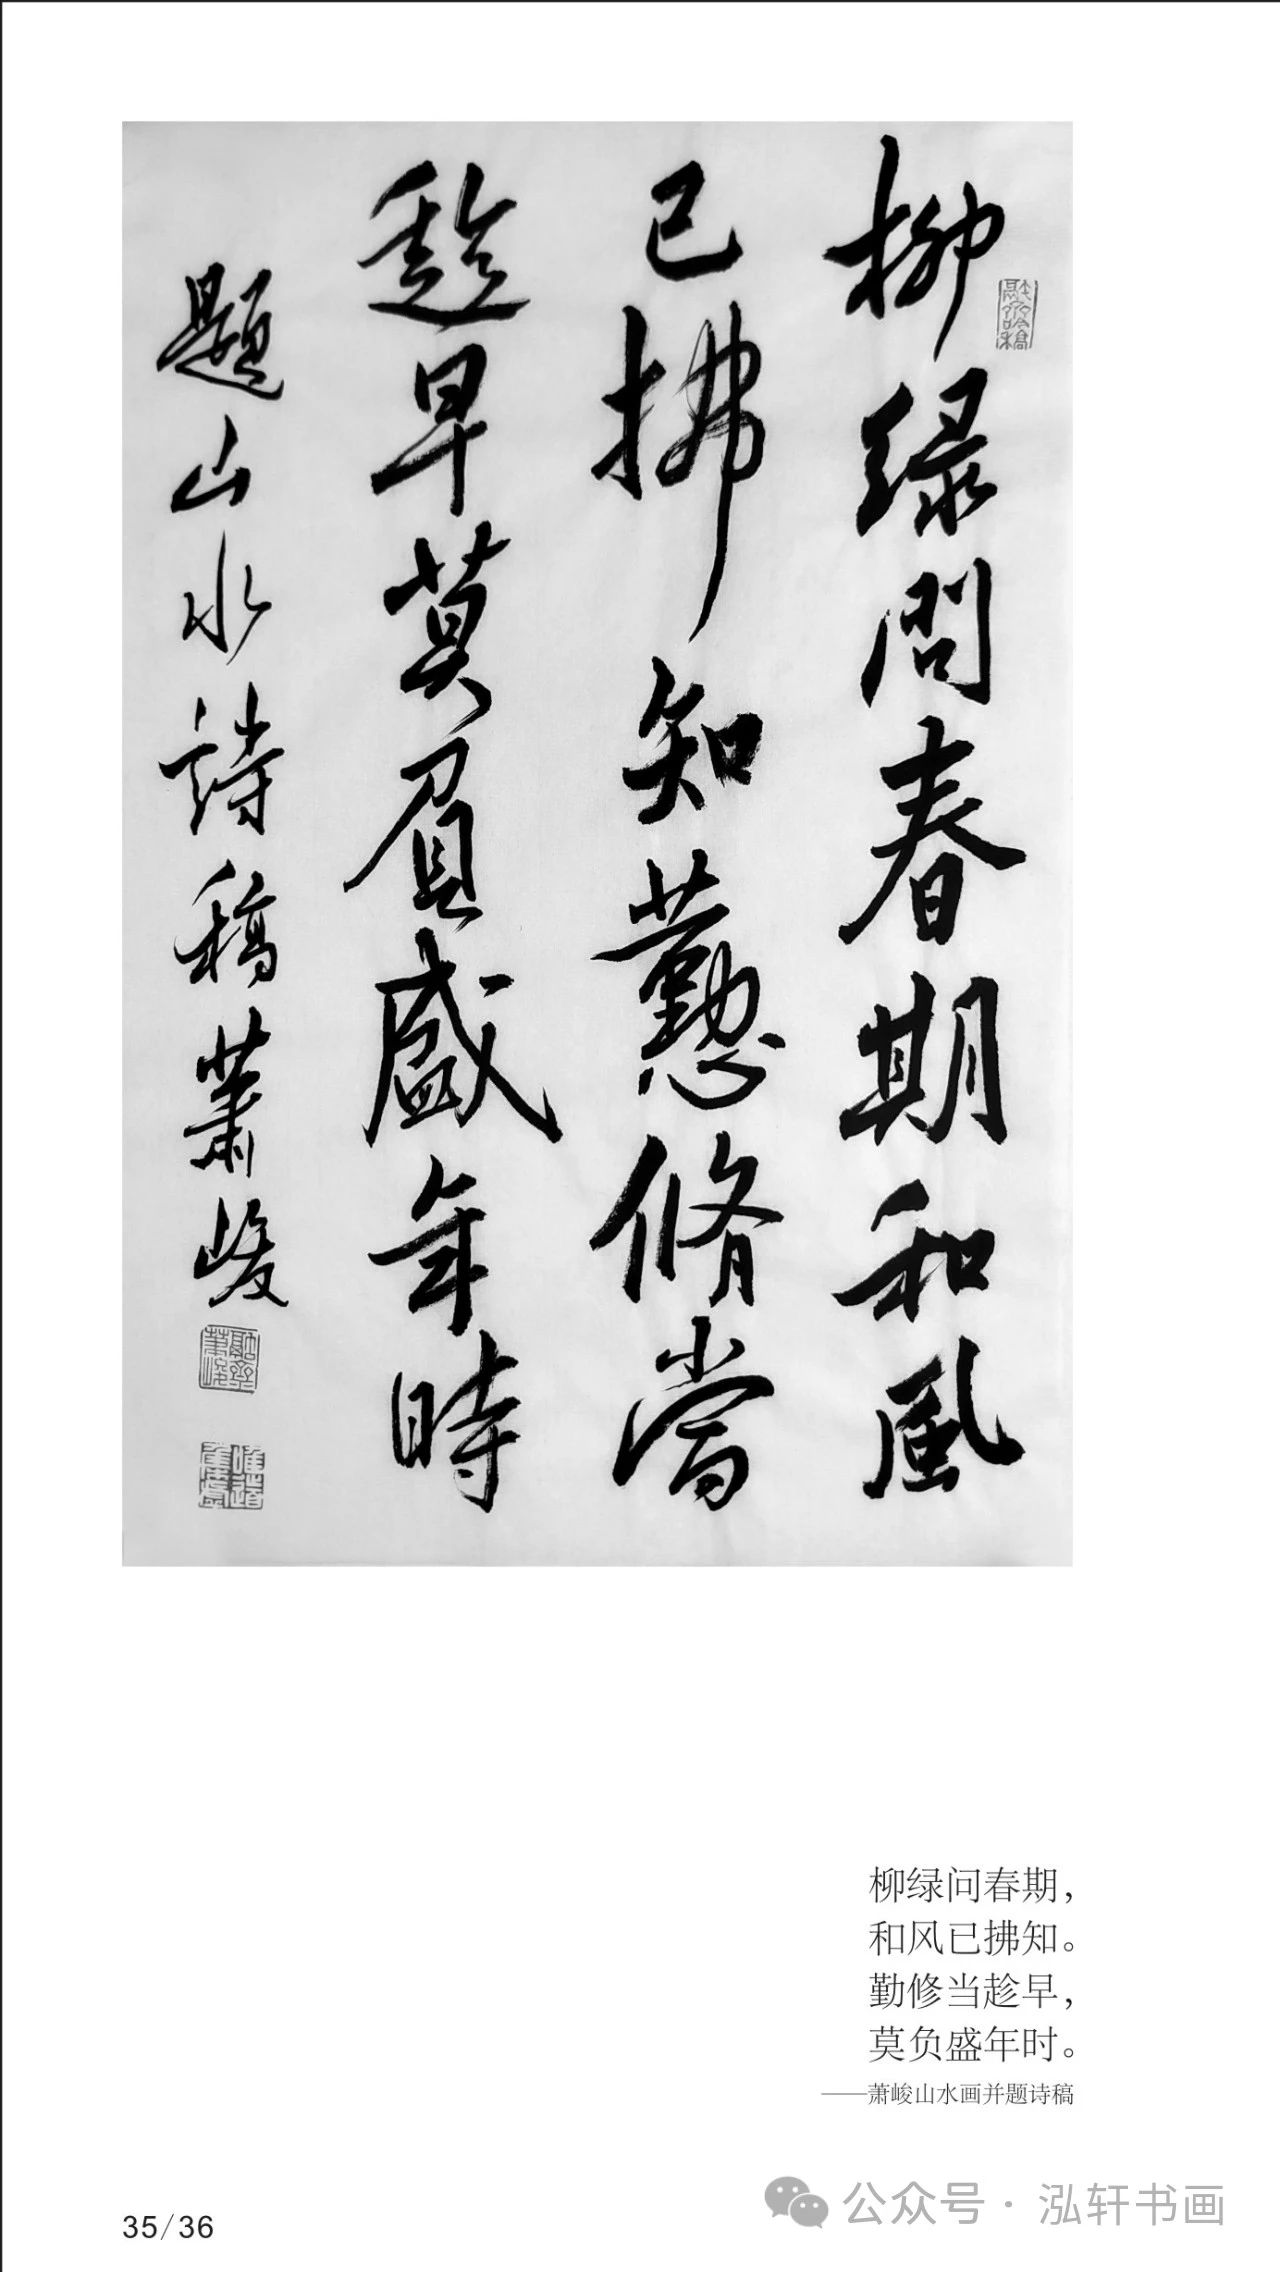 柳绿問春期和風
已拂知懃脩當
趁早莫負盛年時
題山水詩稿蕭峻
柳绿问春期，
和风已拂知。
勤修当趁早，
莫负盛年时。
——萧峻山水画并题诗稿
35/36
公众号·泓轩书画